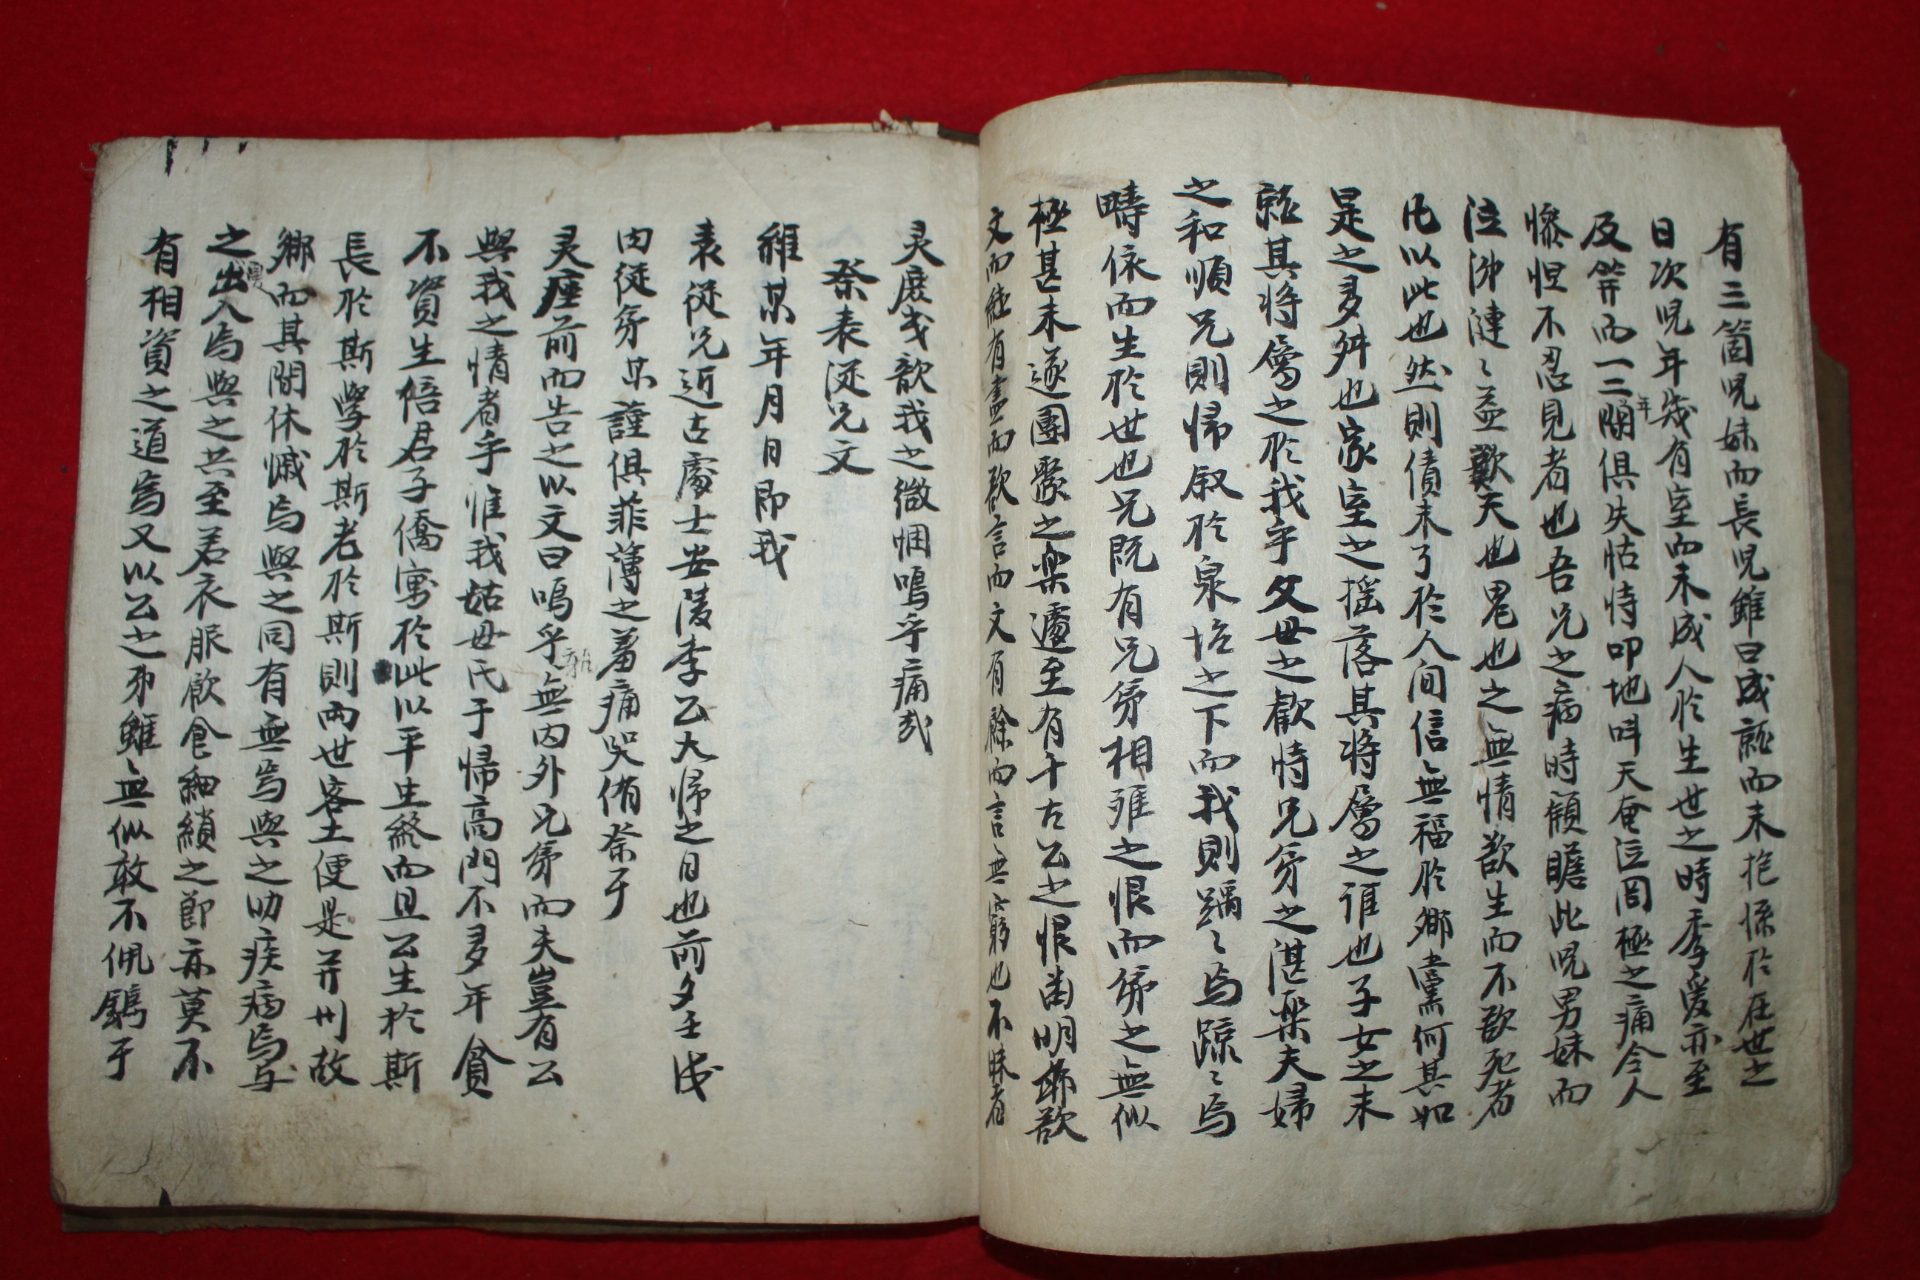 有三箇児妹而長児雖曰成就而未抱孫於在世之
日次児年幾有室而未成人於生世之時季爰亦至
反笄而一二年間俱失怙恃叩地呌天奄泣罔極之痛令人
慘怛不忍見者也吾兄之病時顧瞻此児男妹而
泣涕漣〻益歎天也鬼也之無情欲生而不欲死者
凡以此也然則債未了於人间信無福於鄉黨何其如
是之多舛也家室之摇落其將屬之誰也子女之未
就其將屬之於我乎父母之歡恃兄弟之湛樂夫婦
之和順兄則帰叙於泉坮之下而我則踽〻焉踈〻焉
疇依而生於世也兄既有兄弟相雖之恨而弟之無似
極甚未遂團聚之樂遽至有千古公之恨幽明
文而
有盡而歌言而文有餘而言無窮也不昧者
灵庶幾歆我之微悃嗚乎痛哉
祭表従兄文
維某年月日即我
表従兄近古處士安陵李公大帰之日也前夕壬戌
内従弟某謹俱菲薄之羞痛哭侑奈于
灵座前而告之以文曰嗚乎無内外兄弟而夫豈有公
與我之情者乎惟我姑母氏于帰高門不多年貧
不資生倍君子僑寓於此以平生終而且公生於斯
長於斯學於斯老於斯則两世客土便是并州故
鄉而其間休慽焉與之同有無焉與之助疾病焉与
之出入焉與之共至若衣服飮食細鎖之節亦莫不
有相資之道焉又以公之弟雖無似敢不佩鐫于